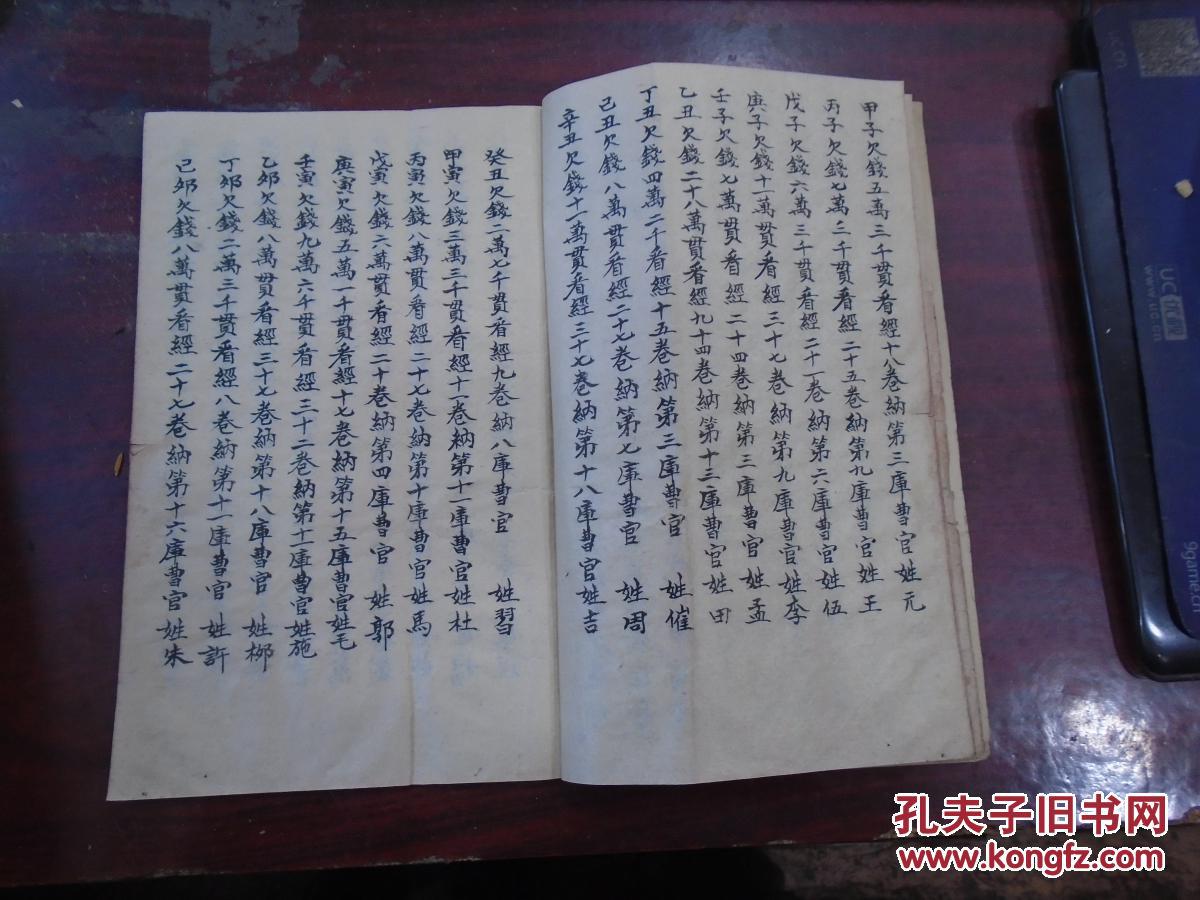 甲子欠錢五萬三千貫看經十八卷納第三庫曹官姓元
丙子欠錢七萬三千貫看經二十五卷納第九庫曹官姓王
戊子欠錢六萬三千貫看經二十一卷納第六庫曹官姓伍
庚子欠錢十一萬貫看經三十七卷納第九庫曹官姓李
壬子欠錢七萬貫看經二十四卷納第三庫曹官姓孟
乙丑欠錢二十八萬貫看經九十四卷納第十三庫曹官姓田
丁丑欠錢四萬二千看經十五卷納第三庫曹官姓催
己丑欠錢八萬貫看經二十七卷納第七庫曹官姓周
辛丑欠錢十一萬貫看經三十七卷納第十八庫曹官姓吉
癸丑欠錢二萬七千貫看經九卷納八庫曹官姓習
甲寅欠錢三萬三千貫看經十一卷納第十一庫曹官姓杜
丙寅欠錢八萬貫看經二十七卷納第十庫曹官姓馬
戊寅欠錢六萬貫看經二十卷納第四庫曹官姓郭
庚寅欠錢五萬一千貫看經十七卷納第十五庫曹官姓毛
壬寅欠錢九萬六千貫看經三十二卷納第十一庫曹官姓施
乙卯欠錢八萬貫看經三十七卷納第十八庫曹官姓柳
丁卯欠錢二萬三千貫看經八卷納第十一庫曹官姓許
己卯欠錢八萬貫看經二十七卷納第十六庫曹官姓朱
UC优视
www.uc.cn
孔夫子旧书网
www.kongfz.com